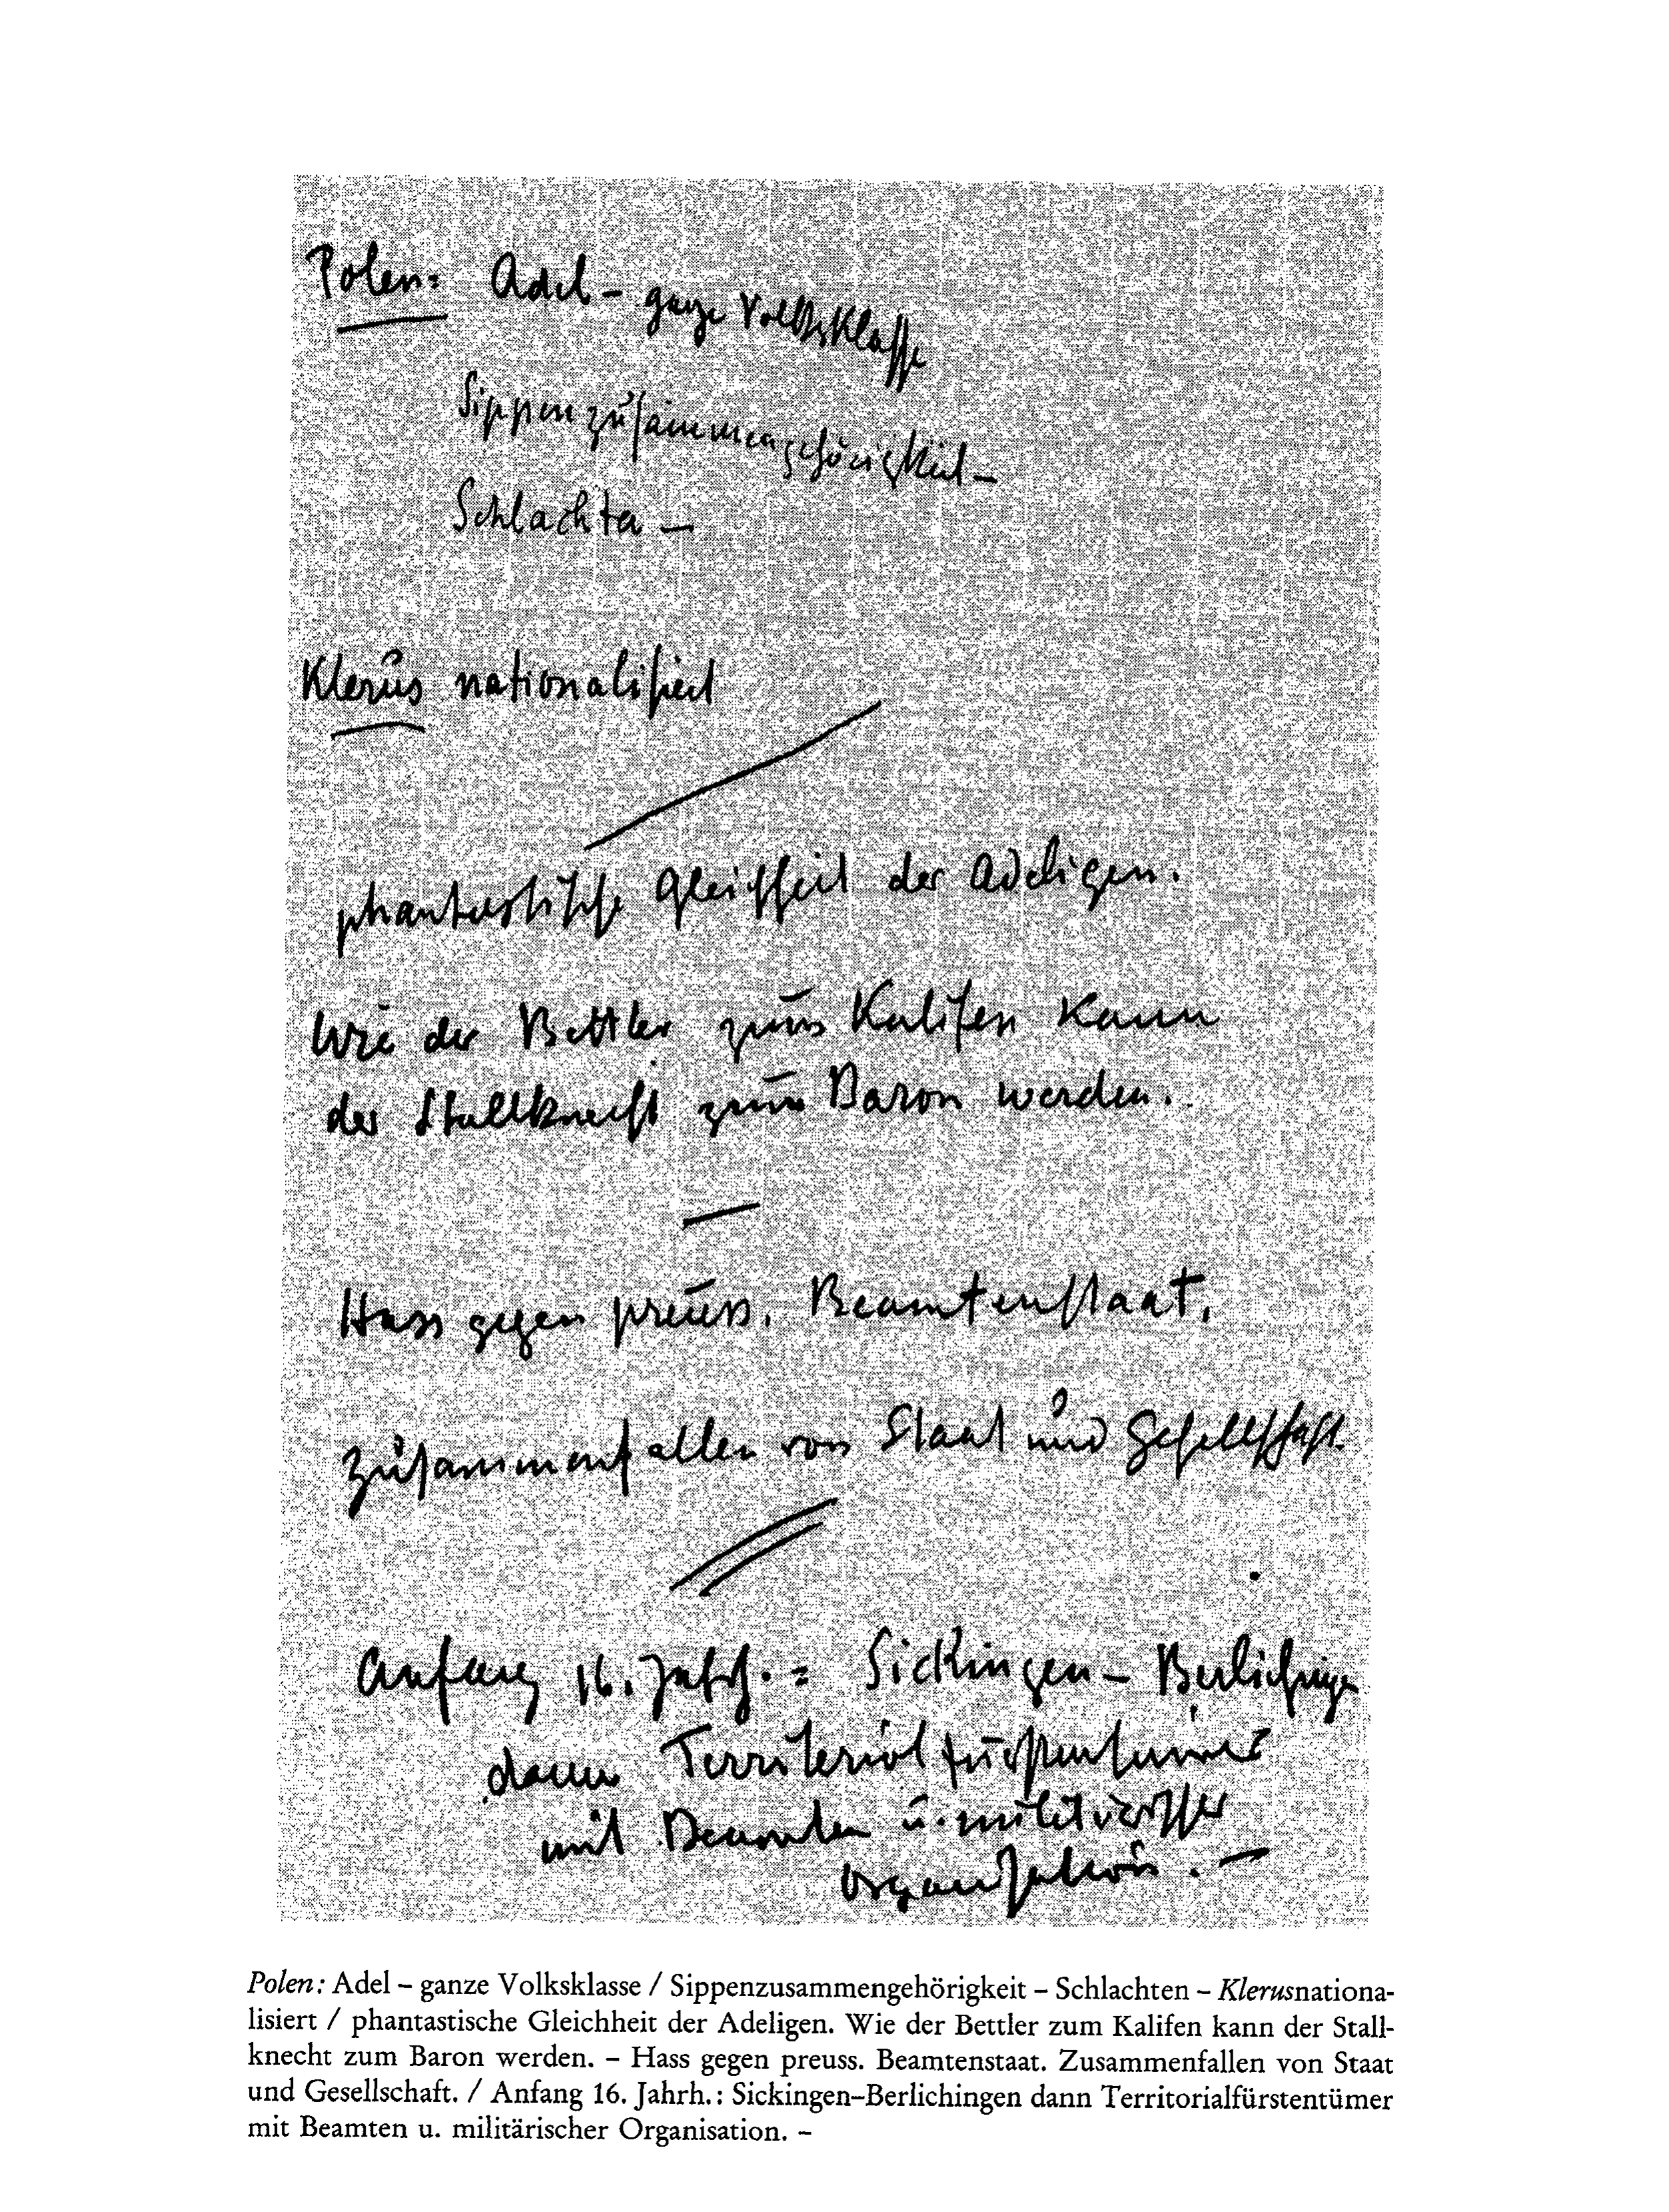 Polen: Adel – ganze Volksklasse
Sippenzusammengehörigkeit –
Schlachta –
Klerus nationalisiert
phantastische Gleichheit der Adeligen.
Wie der Bettler zum Kalifen kann
der Stallknecht zum Baron werden.
–
Hass gegen preuss. Beamtenstaat.
Zusammenfallen von Staat und Gesellschaft.
Anfang 16. Jahrh.: Sickingen – Berlichingen
dann Territorialfürstentümer
mit Beamten u. militärischer
Organisation. –
Polen: Adel – ganze Volksklasse / Sippenzusammengehörigkeit – Schlachten – Klerusnationa-
lisiert / phantastische Gleichheit der Adeligen. Wie der Bettler zum Kalifen kann der Stall-
knecht zum Baron werden. – Hass gegen preuss. Beamtenstaat. Zusammenfallen von Staat
und Gesellschaft. / Anfang 16. Jahrh.: Sickingen–Berlichingen dann Territorialfürstentümer
mit Beamten u. militärischer Organisation. –